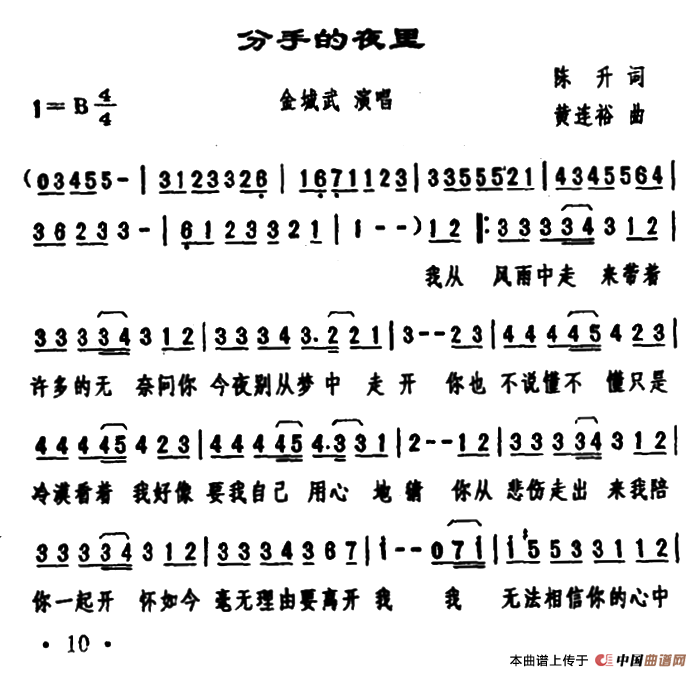 分手的夜里
1=B 4/4
金城武 演唱
陈升 词
黄连裕 曲
(03455-|3123326|1671123|33555521|43455564|
36233-|6123321|1--)12|:33334312|
我从 风雨中走 来带着
33334312|33343.221|3--23|444445423|
许多的无 奈问你 今夜别从梦中 走开 你也 不说懂不 懂只是
44445423|444454.331|2--12|333334312|
冷漠看着 我好像 要我自己 用心 地猜 你从 悲伤走出 来我陪
333334312|3334367|i--07i|i5533112|
你一起开 怀如今 毫无理由要离开 我 我 无法相信你的心中
· 10 ·
本曲谱上传于 中国曲谱网